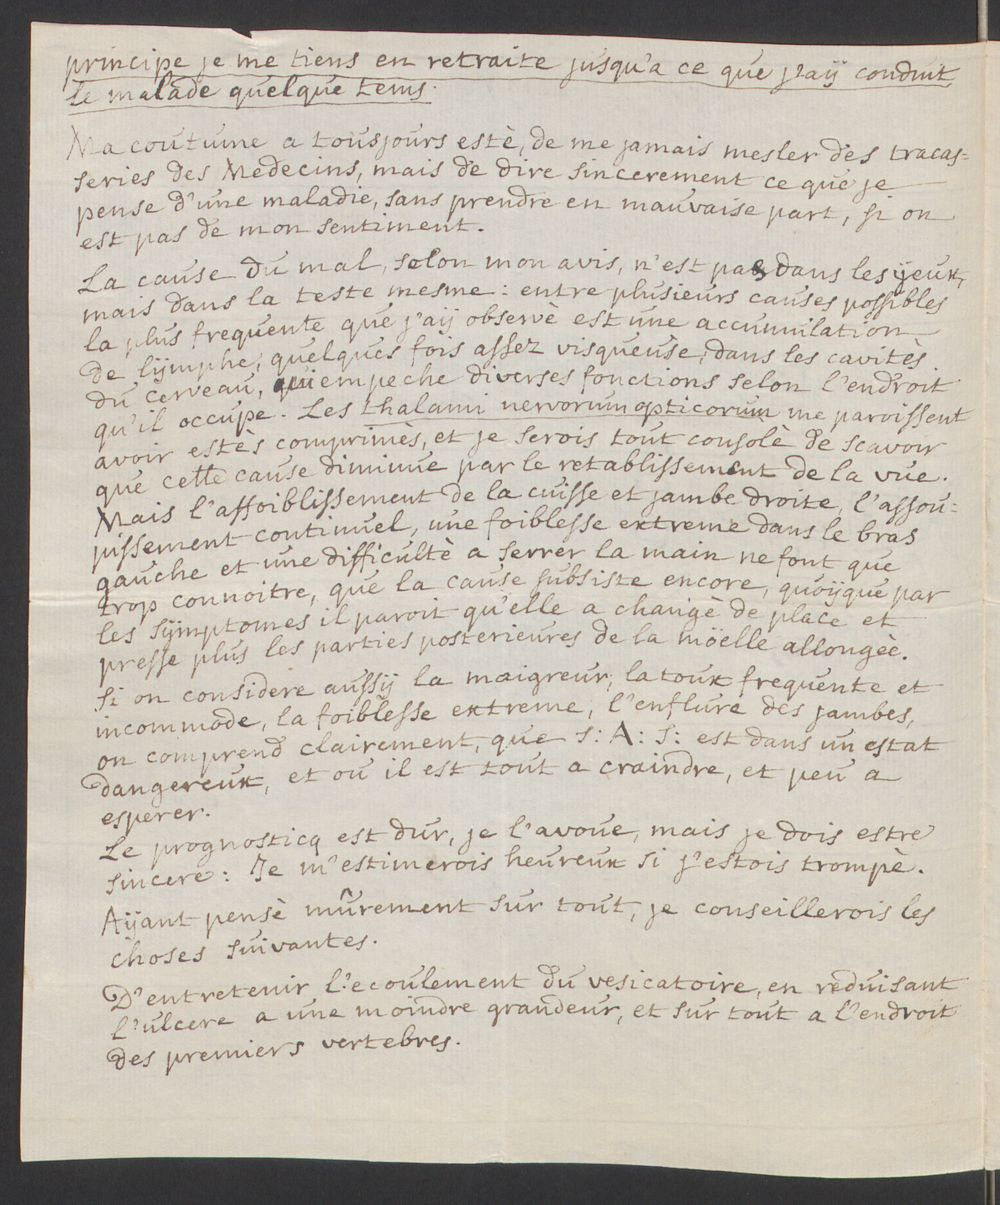 principe je me tiens en retraite jusqu'a ce que j'aÿ conduit
le malade quelque tems.
Ma coutume a tousjours estè, de me jamais mesler des tracas=
series des Medecins, mais de dire sincerement ce que je
pense d'une maladie, sans prendre en mauvaise part, si on
est pas de mon sentiment.
La cause du mal, selon mon avis, n'est pas dans les ÿeux,
mais dans la teste mesme: entre plusieurs causes possibles
la plus frequente que j'aÿ observè est une accumulation
de lÿmphe, quelques fois assez visqueuse, dans les cavitès
du cerveau, qui empeche diverses fonctions selon l'endroit
qu'il occupe. Les thalami nervorum opticorum me paroissent
avoir estès comprimès, et je serois tout consolè de scavoir
que cette cause diminue par le retablissement de la vue.
Mais l'affoiblissement de la cuisse et jambe droite, l'assou=
pissement continuel, une foiblesse extreme dans le bras
gauche et une difficultè a serrer la main ne font que
trop connoitre, que la cause subsiste encore, quoÿque par
les sÿmptomes il paroit qu'elle a changè de place et
presse plus les parties posterieures de la möelle allongèe.
Si on considere aussÿ la maigreur, la toux frequente et
incommode, la foiblesse extreme, l'enflure des jambes,
on comprend clairement, que S: A: S: est dans un estat
dangereux, et ou il est tout a craindre, et peu a
esperer.
Le prognosticq est dur, je l'avoue, mais je dois estre
sincere: Je m'estimerois heureux si j'estois trompè.
Aÿant pensè mûrement sur tout, je conseillerois les
choses suivantes.
D'entretenir l'ecoulement du vesicatoire, en reduisant
l'ulcere a une moindre grandeur, et sur tout a l'endroit
des premiers vertebres.